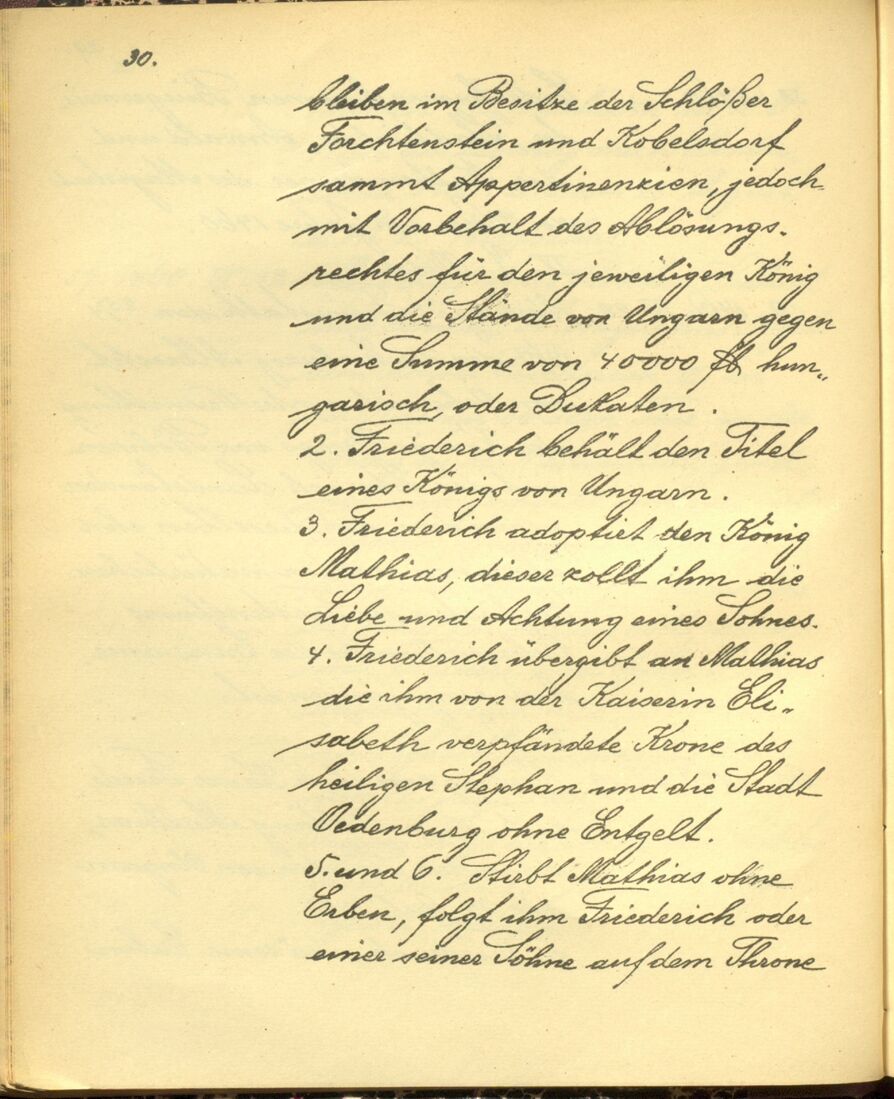 30.
bleiben im Besitze der Schlößer
Forchtenstein und Kobelsdorf
sammt Appertinenzien, jedoch
mit Vorbehalt des Ablösungs-
rechtes für den jeweiligen König
und die Stände von Ungarn gegen
eine Summe von 40000 fl hun„
garisch, oder Dukaten.
2. Friederich behält den Titel
eines Königs von Ungarn.
3. Friederich adoptiet den König
Mathias, dieser zollt ihm die
Liebe und Achtung eines Sohnes.
4. Friederich übergibt an Mathias
die ihm von der Kaiserin Eli„
sabeth verpfändete Krone des
heiligen Stephan und die Stadt
Oedenburg ohne Entgelt.
5. und 6. Stirbt Mathias ohne
Erben, folgt ihm Friederich oder
einer seiner Söhne auf dem Throne